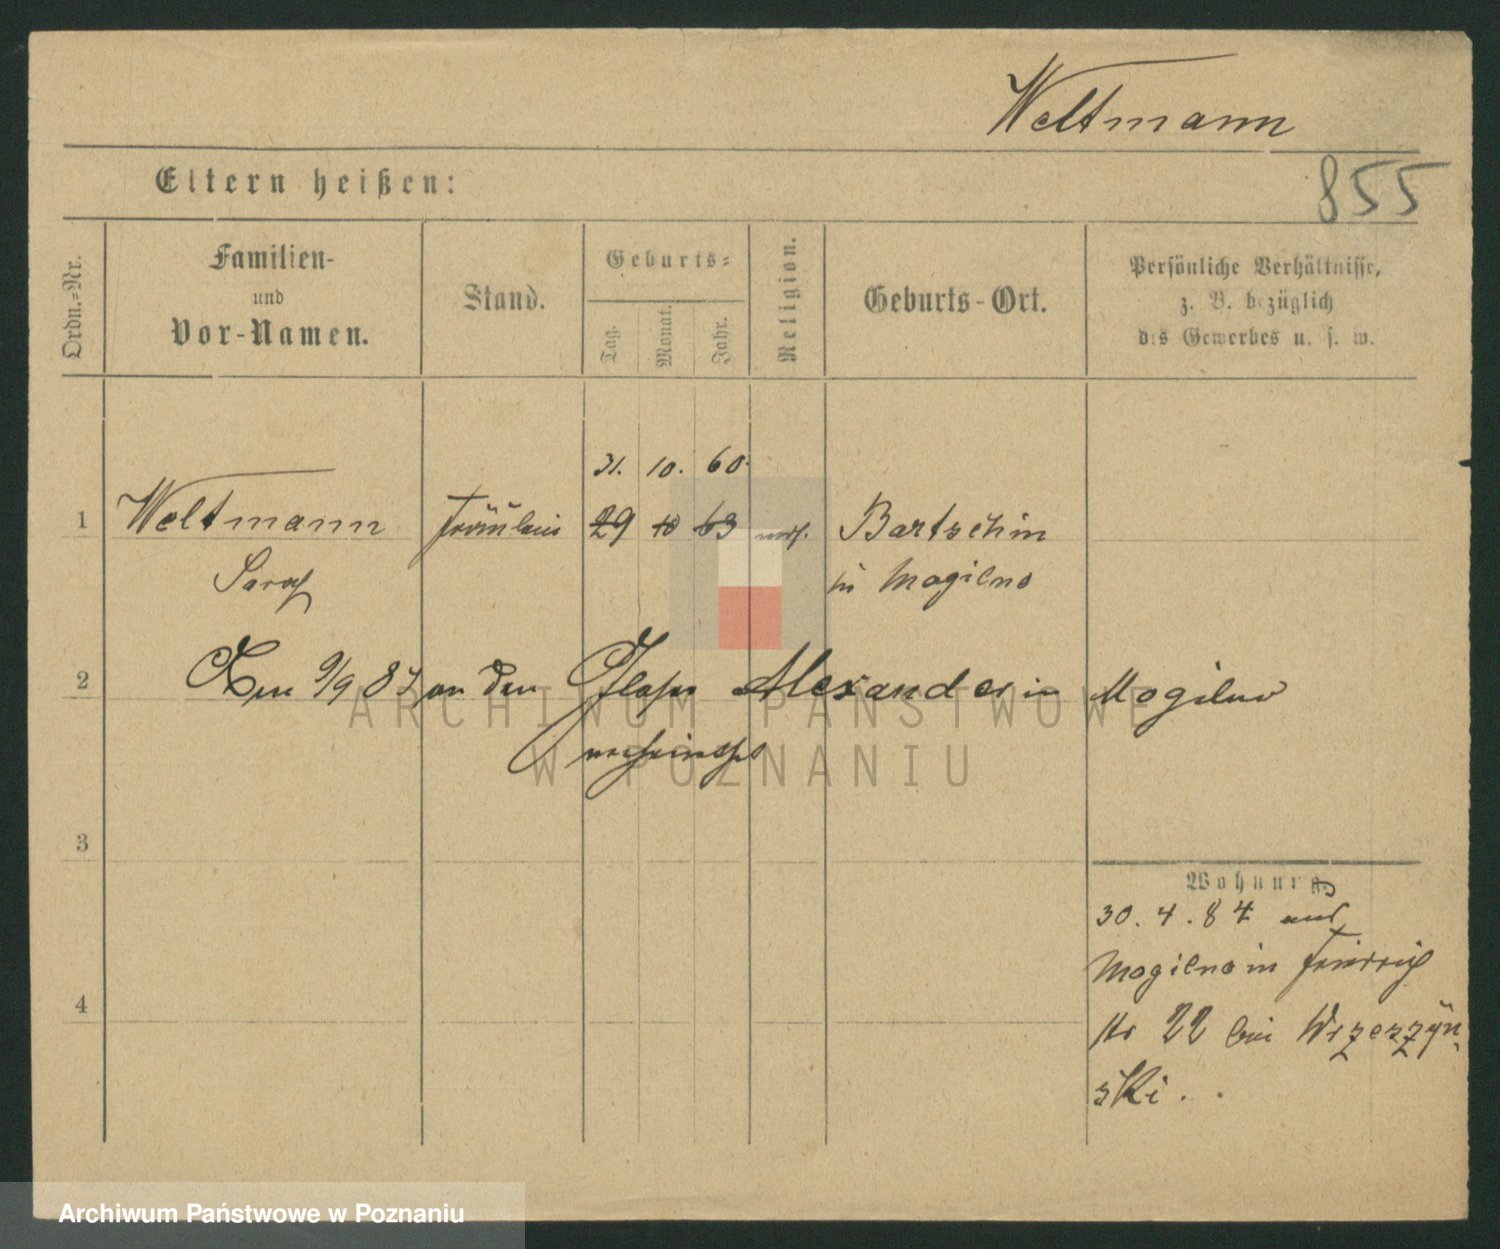 Weltmann
855
Eltern heißen:
Ordn.-Nr.
Familien-
und
Vor-Namen.
Stand.
Geburts-
Tag.
Monat.
Jahr.
Religion.
Geburts-Ort.
Persönliche Verhältnisse,
z. B. bezüglich
des Gewerbes u. s. w.
31. 10. 60.
1 Weltmann Fräulein 29 10 63 mos. Bartschin
Sarah in Mogilno
2 Den 9/9 87 an den Glaser Alexander in Mogilno
verheirathet
3
Wohnung
30. 4. 84 aus
Mogilno in Friedrich
4
str 22 bei Wrzeszyn-
ski.
ARCHIWUM PAŃSTWOWE
W POZNANIU
Archiwum Państwowe w Poznaniu